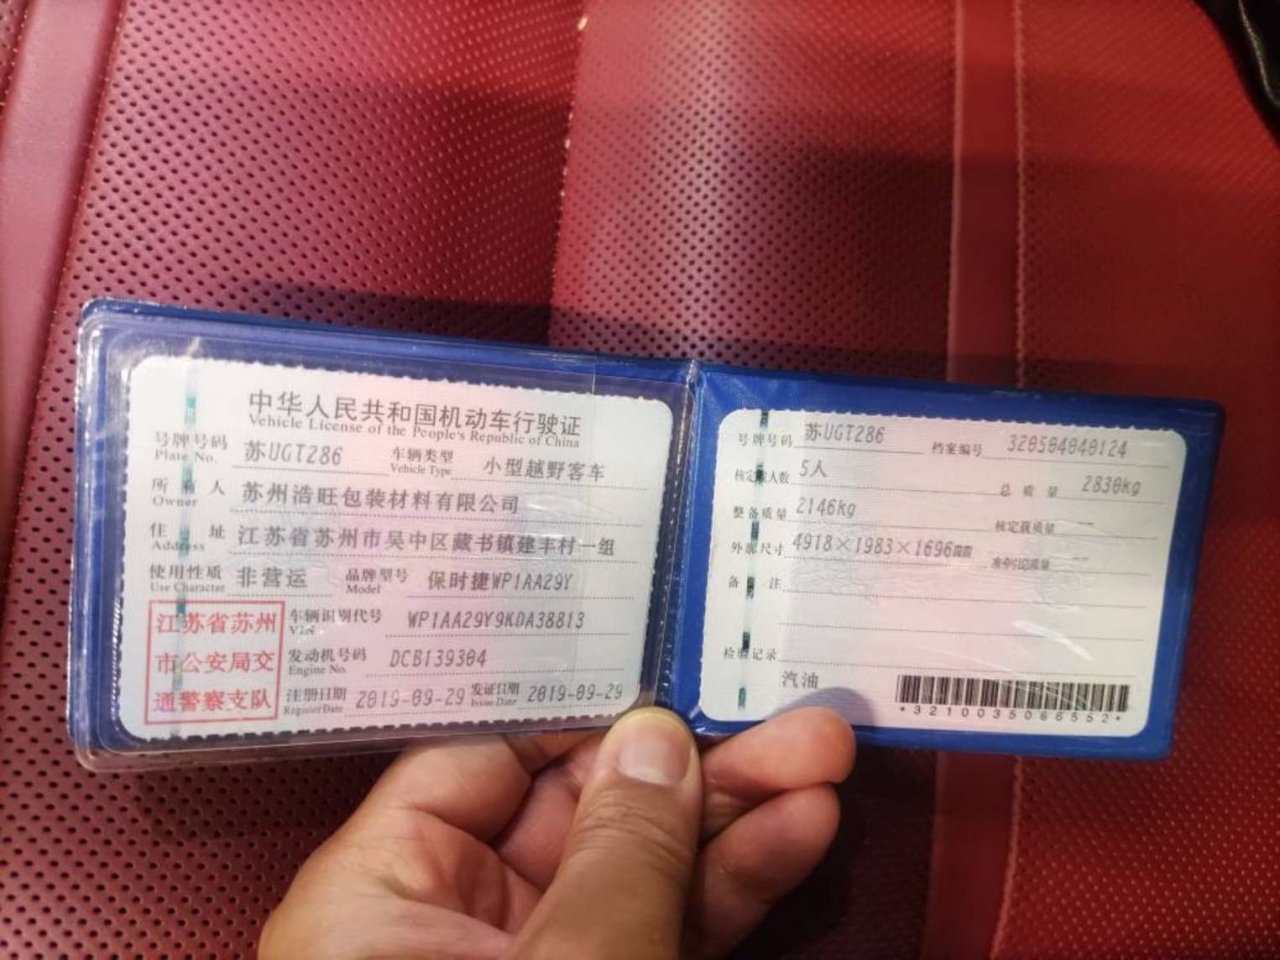 中华人民共和国机动车行驶证
Vehicle License of the People's Republic of China
号牌号码 苏UGT286 车辆类型 小型越野客车
Plate No. Vehicle Type
所有人 苏州浩旺包装材料有限公司
Owner
住址 江苏省苏州市吴中区藏书镇建丰村一组
Address
使用性质 非营运 品牌型号 保时捷WP1AA29Y
Use Character Model
江苏省苏州
市公安局交
通警察支队
车辆识别代号 WP1AA29Y9KDA38813
VIN
发动机号码 DCB139304
Engine No.
注册日期 2019-09-29 发证日期 2019-09-29
Register Date Issue Date
号牌号码 苏UGT286 档案编号 320504040124
核定载人数 5人 总质量 2830kg
整备质量 2146kg 核定载质量 --
外廓尺寸 4918×1983×1696mm 准牵引总质量 --
备注
检验记录
汽油
*3210035066552*